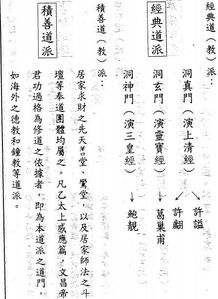 經典道(教)派:
經典道派
洞真門(演上清經)
許謐
許翽
洞玄門(演靈寶經)
葛巢甫
洞神門(演三皇經)
鮑靚
積善道(教)派:
積善道派
居家求財之先天堂、鸞堂,以及居家師法之斗
壇等奉道團體均屬之。凡乙太上感應篇,文昌帝
君功過格為修道之依據者,即為本道派之道門,
如海外之德教和鐘教等道派。